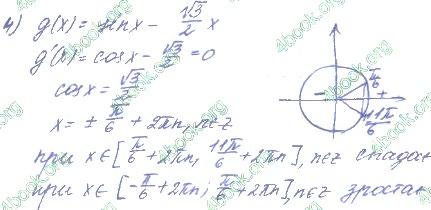 4) g(x) = sinx - √3/2 x
g'(x) = cosx - √3/2 = 0
cosx = √3/2
x = ± π/6 + 2πn, n∈z
при x∈[π/6 + 2πn, 11π/6 + 2πn], n∈z спадає
при x∈[-π/6 + 2πn; π/6 + 2πn], n∈z зростає
π/6
- +
11π/6
4book.org